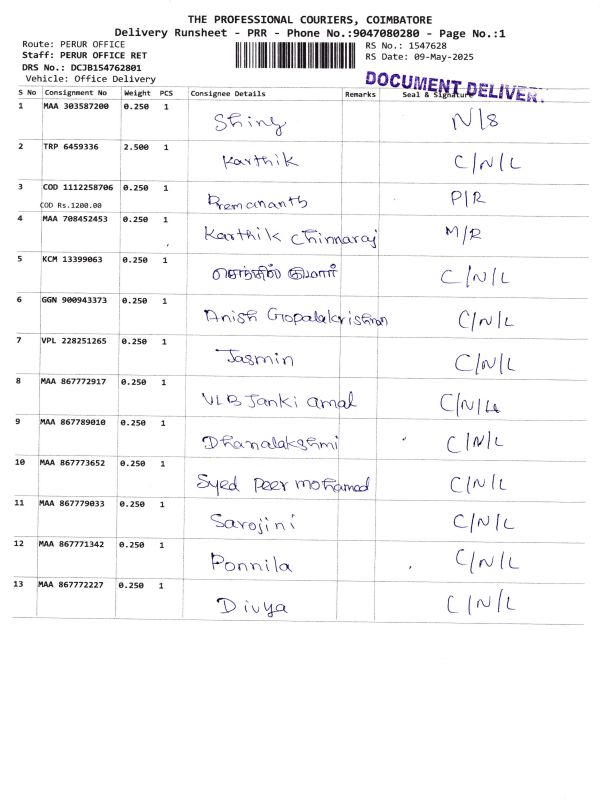 THE PROFESSIONAL COURIERS, COIMBATORE
Delivery Runsheet - PRR - Phone No.:9047080280 - Page No.:1
Route: PERUR OFFICE
Staff: PERUR OFFICE RET
DRS No.: DCJB154762801
Vehicle: Office Delivery
RS No.: 1547628
RS Date: 09-May-2025
DOCUMENT DELIVER.
S No Consignment No Weight PCS Consignee Details Remarks Seal & Signature
1 MAA 303587200 0.250 1 Shiny N/S
2 TRP 6459336 2.500 1 Karthik C/N/L
3 COD 1112258706 0.250 1 Premananth P/R
COD Rs.1200.00
4 MAA 708452453 0.250 1 Karthik Chinnaraj M/R
5 KCM 13399063 0.250 1 செந்தில் குமார் C/N/L
6 GGN 900943373 0.250 1 Anish Gopalakrishnan C/N/L
7 VPL 228251265 0.250 1 Jasmin C/N/L
8 MAA 867772917 0.250 1 VLB Janki amal C/N/L
9 MAA 867789010 0.250 1 Dhanalakshmi C/N/L
10 MAA 867773652 0.250 1 Syed Peer mohamed C/N/L
11 MAA 867779033 0.250 1 Sarojini C/N/L
12 MAA 867771342 0.250 1 Ponnila C/N/L
13 MAA 867772227 0.250 1 Divya C/N/L